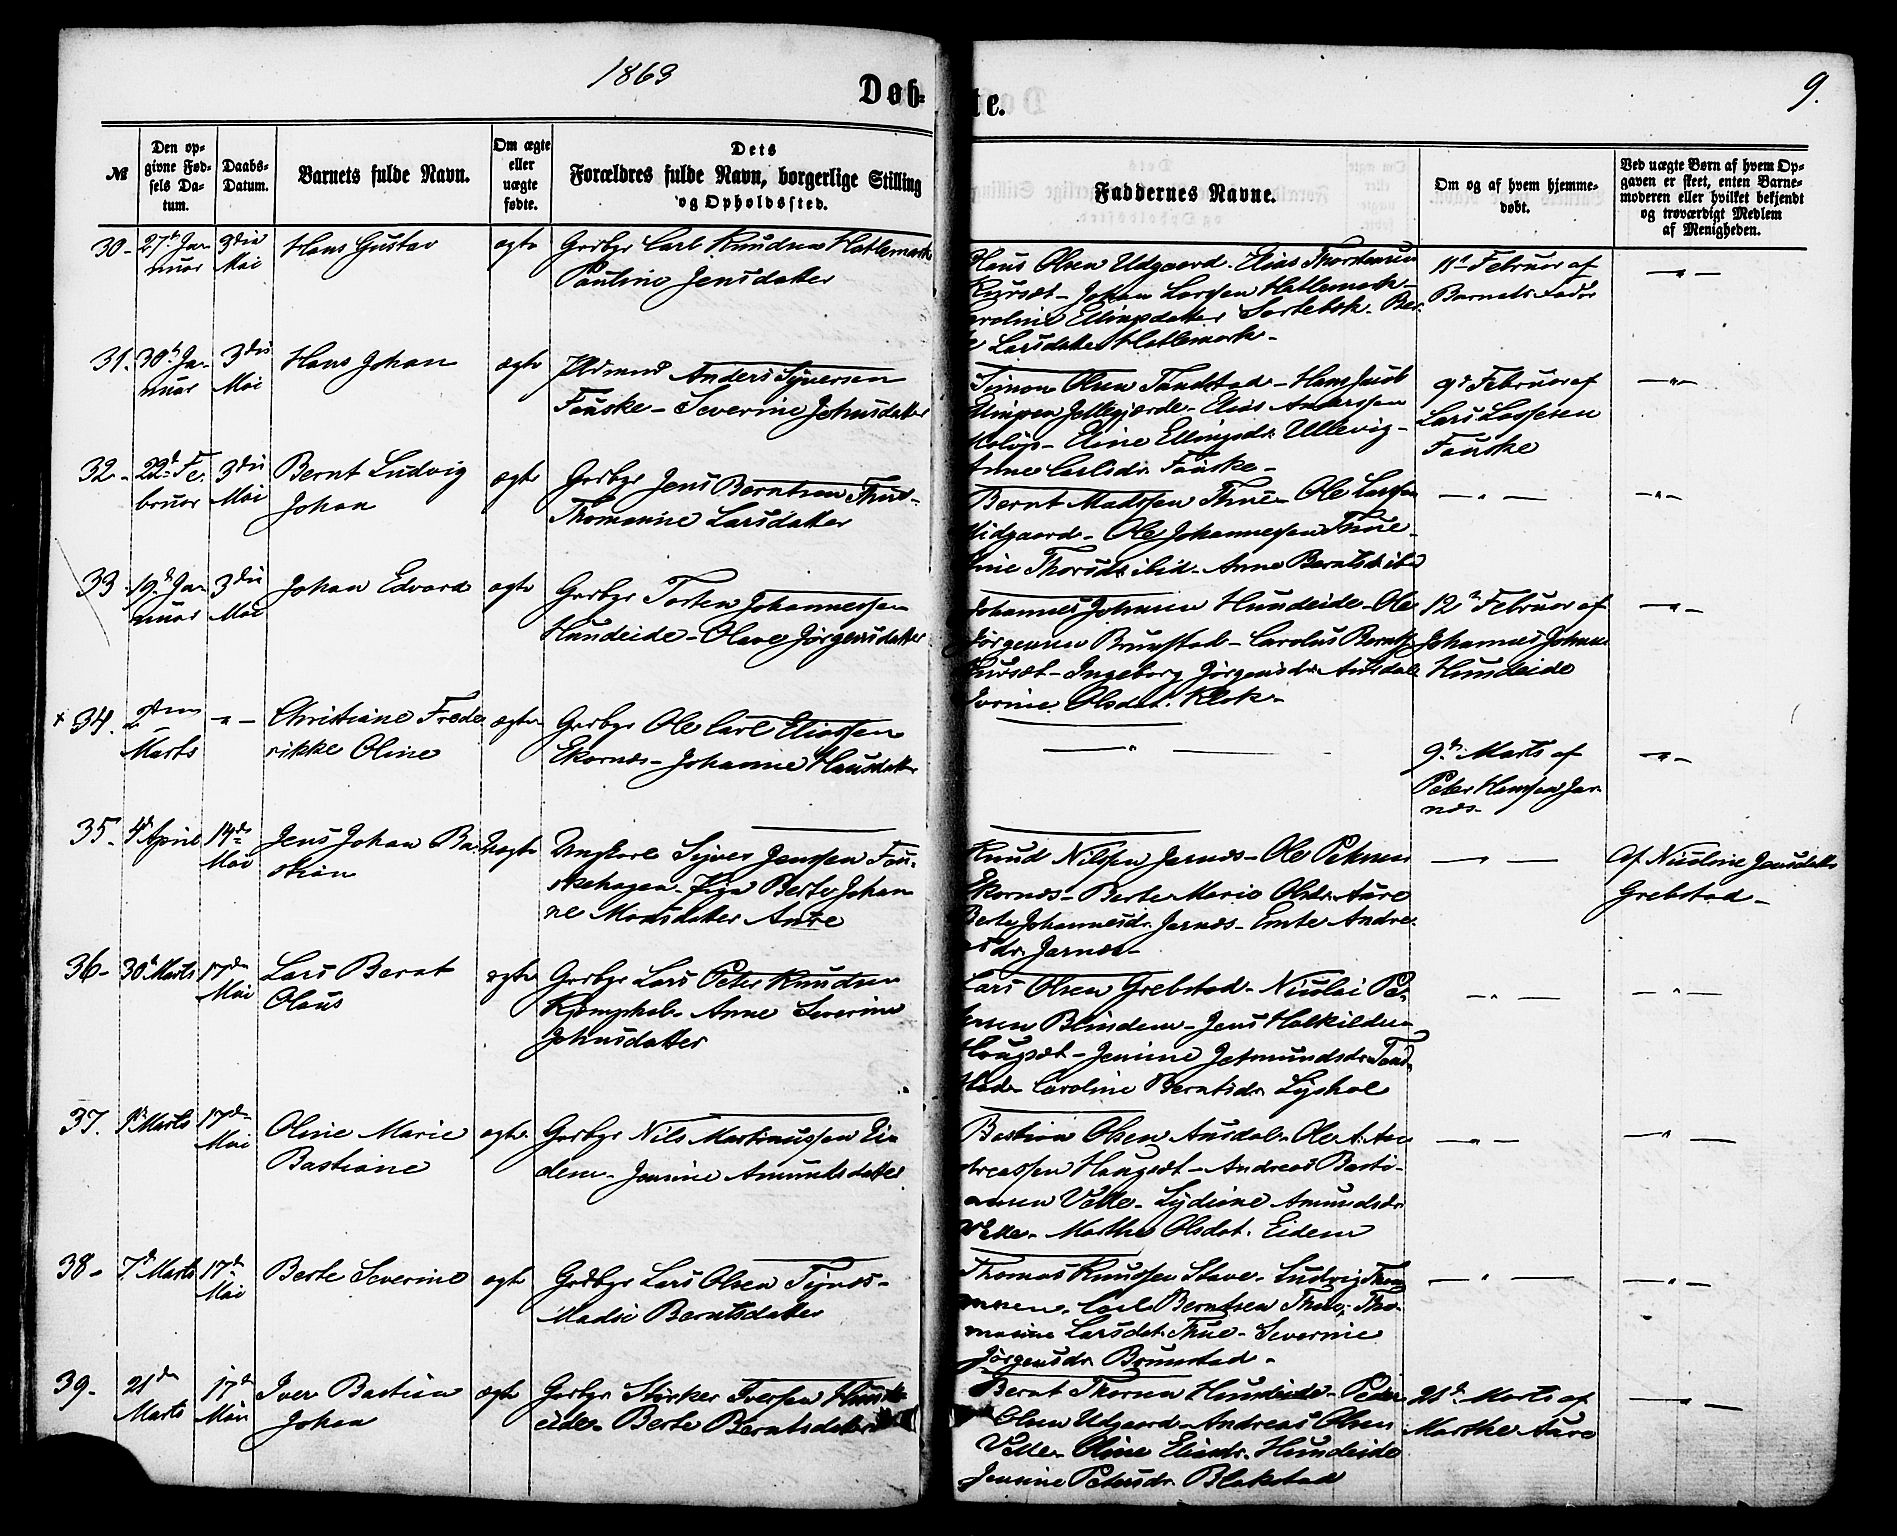 1863
Døb-
te.
9.
№
Den op-
givne Fød-
sels Da-
tum.
Daabs-
Datum.
Barnets fulde Navn.
Om ægte
eller
uægte
fødte.
Dets
Forældres fulde Navn, borgerlige Stilling
og Opholdssted.
Faddernes Navne.
Om og af hvem hjemme-
døbt.
Ved uægte Børn af hvem Op-
gaven er skeet, enten Barne-
moderen eller hvilket bekjendt
og troværdigt Medlem
af Menigheden.
30-
27de Ja-
nuar
3die
Mai
Hans Gustav
ægte
Grdbgr Carl Knudsen Hatlemark
Pauline Jensdatter
Hans Olsen Udgaard. Elias Thorstensen
Kursæt- Johan Larssen Hatlemark-
Caroline Ellingsdatter Sortebek. Ber-
te Larsdatter Hatlemark-
11te Februar af
Barnets Fader
31.
30te Ja-
nuar
3die
Mai
Hans Johan
ægte
Anders Syversen
Fauske- Severine Johnsdatter
Simon Olsen Tandstad- Hans Jacob
Ellingsen Jellegjærde- Elias Anderssen
Eline Ellingsdr Ullevig-
Anne Carlsdr. Fauske-
9de Februar af
Lars Lassesen
Fauske
32-
22de Fe-
bruar
3die
Mai
Bernt Ludvig
Johan
ægte
Grdbgr Jens Berntsen Thue-
Thomasine Larsdatter
Bernt Madssen Thue- Ole Larssen
Midgaard- Ole Johannessen Thue-
Thorsdr ibid- Anne Berntsdr ibd
33
19de Ja-
nuar
3die
Mai
Johan Edvard
ægte
Grdbgr Tosten Johannessen
Hundeide- Olave Jørgensdatter
Johannes Johnsen Hundeide- Ole
Jørgensen Brunstad- Carolus Berntss.
Kursæt- Ingeborg Jørgensdr. Ansdal
Olsdat. Klok-
12te Februar af
Johannes Johnsen
Hundeide
+ 34.
2den
Marts
Christiane Frede-
rikke Oline
ægte
Grdbgr Ole Carl Eliassen
Ekornes- Johanne Hansdatter
9de Marts af
Peter Hanssen Jar-
næs-
35.
4de April
14de
Mai
Jens Johan Ba-
stian
Uægte
Ungkarl Syver Jenssen Fau-
skehagen- Pige Berte Johan-
ne Monsdatter Aure
Knud Nilssen Jarnes- Ole Petersen
Ekornæs- Berte Marie Olsdr. Aure
Berte Johannesdr. Jarnæs- Emte Andre-
asdr. Jarnæs-
Af Nicoline Jensdatter
Grebstad-
36-
30te Marts
17de
Mai
Lars Bernt
Olaus
ægte
Grdbgr Lars Peter Knudsen
Kjemphol- Anne Severine
Johnsdatter
Lars Olsen Grebstad- Nicolai Pe-
tersen Blindem- Jens Halkildsen
Haugset- Jensine Jetmundsdr Tand-
stad- Caroline Berntsdr. Lyshol
37.
1ste Marts
17de
Mai
Oline Marie
Bastiane
ægte
Grdbgr Nils Martinussen Ei-
dem- Jensine Amundsdatter
Bastian Olsen Ansdal- Ole A. An-
dreassen Haugset- Andreas Basti-
ansen Velle- Lydiene Amundsdr
Velle- Marthe Olsdat. Eidem
38-
7de Marts
17de
Mai
Berte Severine
ægte
Grdbgr Lars Olsen Tynes-
Madsi Berntsdatter
Thomas Knudssen Stave- Ludvig Thom-
assen- Carl Berntsen Thue- Tho-
masine Larsdat. Thue- Severine
Jørgensdr. Brunstad-
39-
21de
Marts
17de
Mai
Iver Bastian
Johan
ægte
Grdbgr Størker Iversen Hund-
eide- Berte Berntsdatter
Bernt Thorsen Hundeide- Peder
Olsen Udgaard- Andreas Olsen
Velle- Oline Eliasdr. Hundeide
Jensine Petersdr. Blakstad
21de Marts af
Marthe Aure